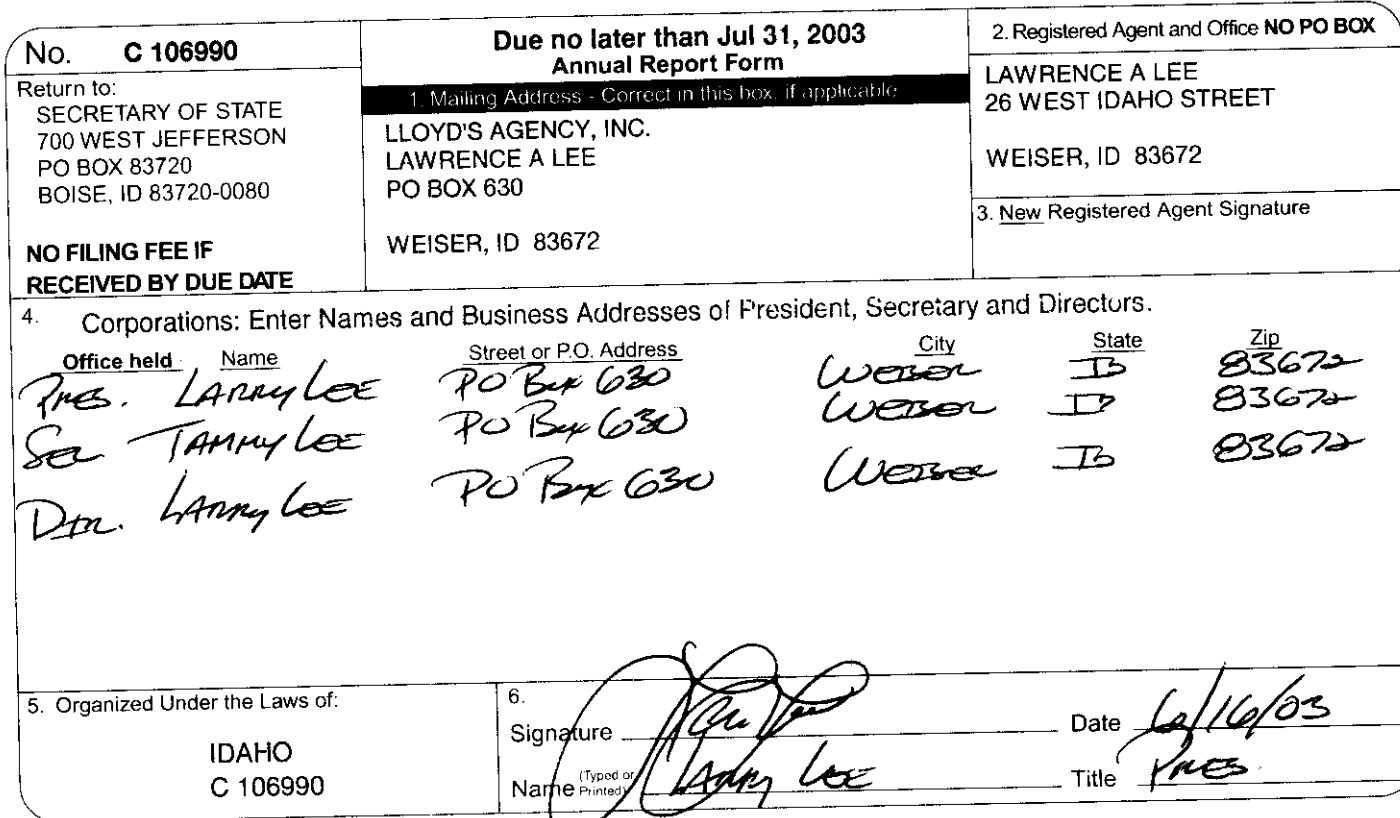 No. C 106990
Return to:
SECRETARY OF STATE
700 WEST JEFFERSON
PO BOX 83720
BOISE, ID 83720-0080
NO FILING FEE IF
RECEIVED BY DUE DATE
Due no later than Jul 31, 2003
Annual Report Form
1. Mailing Address - Correct in this box, if applicable
LLOYD'S AGENCY, INC.
LAWRENCE A LEE
PO BOX 630
WEISER, ID 83672
2. Registered Agent and Office NO PO BOX
LAWRENCE A LEE
26 WEST IDAHO STREET
WEISER, ID 83672
3. New Registered Agent Signature
4. Corporations: Enter Names and Business Addresses of President, Secretary and Directors.
Office held Name Street or P.O. Address City State Zip
PRES. LARRY LEE PO Box 630 WEISER ID 83672
SEC TAMMY LEE PO Box 630 WEISER ID 83672
DIR. LARRY LEE PO Box 630 WEISER ID 83672
5. Organized Under the Laws of:
IDAHO
C 106990
6.
Signature Date 6/16/03
Name (Typed or Printed) LARRY LEE Title PRES.